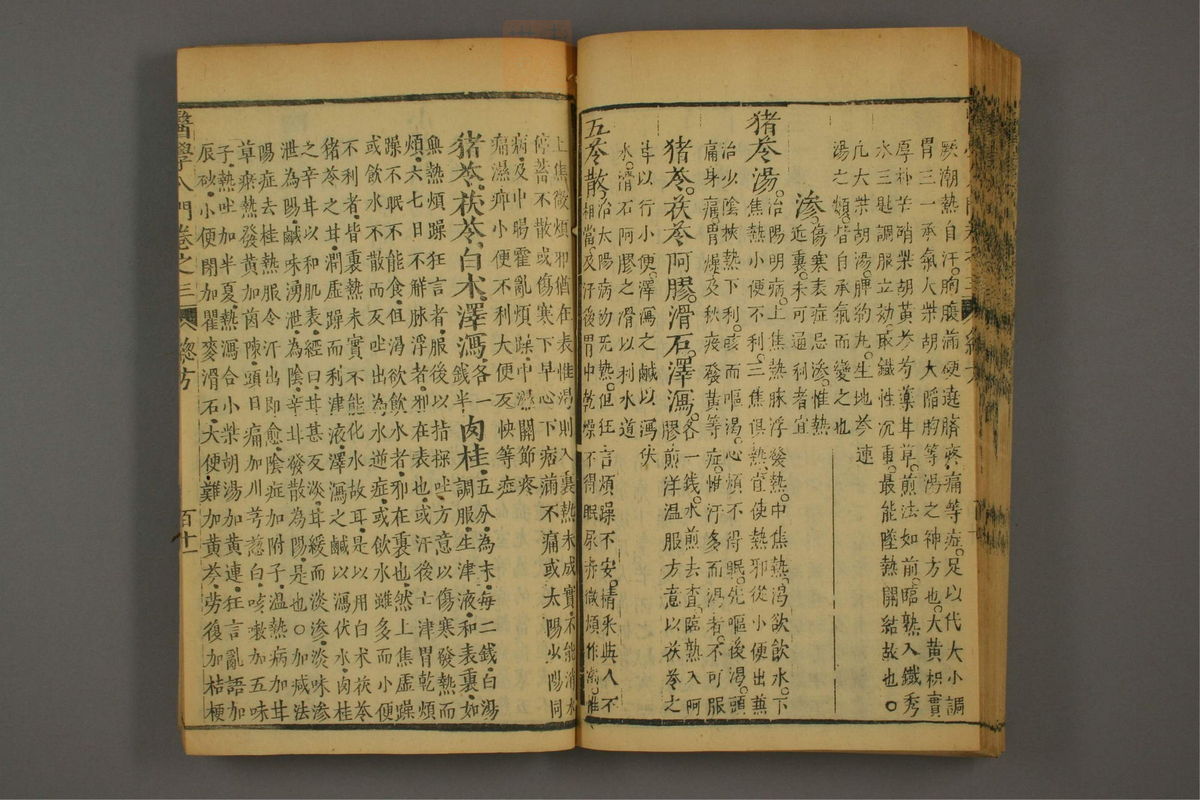 厥潮熱自汗。胸腹滿硬遶臍疼痛等症。足以代大小調
胃三一承氣大柴胡大陷胸等湯之神方也。大黃枳實
厚朴芒硝柴胡黃芩芍藥甘草。煎法如前。臨熟入鐵秀
水三匙調服立効。取鐵性沉重。最能墜熱開結故也。○
湯之類。皆自承氣而變之也
滲。傷寒表症忌滲。惟熱
近裏。未可通利者宜
猪苓湯。治陽明病。上焦熱脉浮發熱。中焦熱。渴欲飲水。下
焦熱小便不利。三焦俱熱。宜使熱邪從小便出。兼
治少陰挾熱下利。咳而嘔渴。心煩不得眠。先嘔後渴。頭
痛身痛。胃燥。及秋疫發黃等症。惟汗多而渴者。不可服
猪苓。茯苓。阿膠。滑石。澤瀉。各一錢水煎去查。臨熟入阿
膠煎洋温服方意以茯苓之
甘以行小便。澤瀉之鹹以瀉伏
水。滑石阿膠之滑以利水道
五苓散。治太陽病的旡熱。但狂言煩躁不安。情采與人不
相當。及汗後胃中乾燥不得眠尿赤微煩作渴。惟
上焦微煩邪猶在表惟渴則入裏熱未成實。不能消水
停蓄不散或傷寒下早心下痞滿不痛或太陽少陽同
病。及中暍霍亂煩躁。中濕關節疼
痛濕痺小便不利大便反快等症
猪苓。茯苓。白朮。澤瀉。各一錢半肉桂。五分。為末。每二錢。白湯
調服。生津液。和表裏。如
無熱煩躁狂言者。服後以指探吐方意以傷寒發熱而
煩。六七日不解脉浮者。邪在表也。或汗後亡津胃乾煩
躁。不眠不能食。但渴欲飲水者。邪在裏也。然上焦虛躁
或飲水不散而反吐出為水逆症。或飲水雖多而小便
不利者。皆裏熱未實不能化水故耳是以用白朮茯苓
猪苓之甘。潤虛躁而利津液。澤瀉之鹹以瀉伏水。肉桂
之辛甘以和肌表。經曰。甘甚反淡。甘緩而淡滲。淡味滲
泄為陽。鹹味湧泄。為陰。辛甘發散為陽。是也。○加减法
陽症去桂熱服令汗出即愈。陰症加附子。温熱病加甘
草。瘀熱發黃加茵陳。頭目痛加川芎葱白。咳嗽加五味
子。熱吐加半夏。熱瀉合小柴胡湯加黃連。狂言亂語加
辰砂。小便閉加瞿麥滑石。大便難加黃芩。勞復加桔梗
醫學入門卷之三 總方 百十一